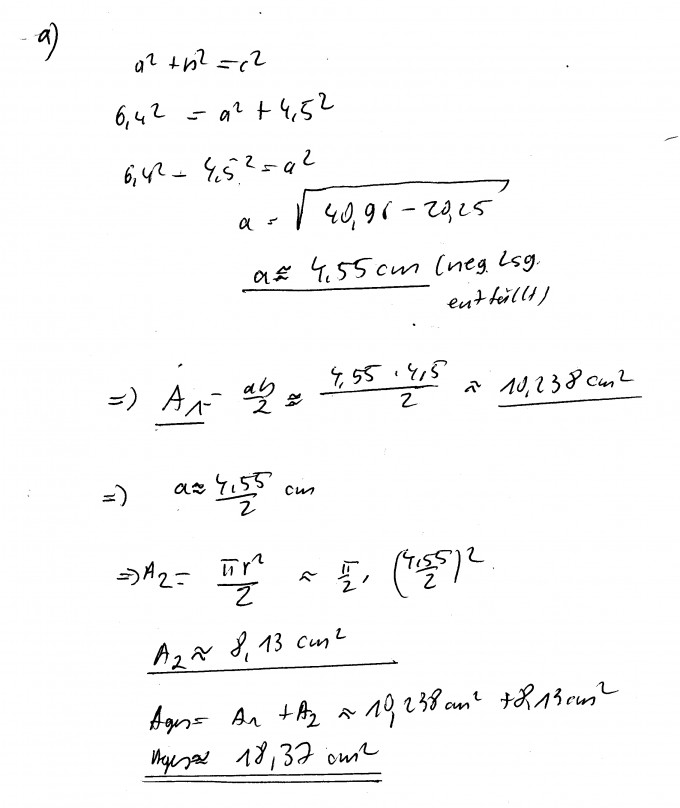 a)
a² + b² = c²
6,4² = a² + 4,5²
6,4² - 4,5² = a²
a = √40,96 - 20,25
a ≈ 4,55 cm (neg. Lsg.
entfällt)
=> A₁ = ab/2 ≈ 4,55 · 4,5/2 ≈ 10,238 cm²
=> a ≈ 4,55/2 cm
=> A₂ = πr²/2 ≈ π/2 · (4,55/2)²
A₂ ≈ 8,13 cm²
Ages = A₁ + A₂ ≈ 10,238 cm² + 8,13 cm²
Ages ≈ 18,37 cm²